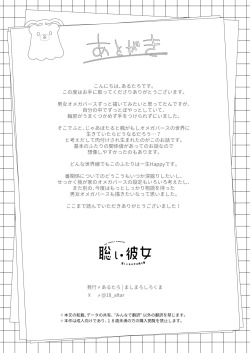 あとがき
こんにちは、あるたらです。
この度はお手に取ってくださりありがとうございます。
男女オメガバースずっと描いてみたいと思ってたんですが、
自分の中でずっとぼやっとしていて、
輪郭がうまくつかめず手をつけられずにいました。
そこでふと、じゃあほたると桃がもしオメガバースの世界に
生きていたらどうなるだろう…?
と考えだして肉付けされ生まれたのがこのお話です。
基本のふたりの関係値があってのお話なので
想像しやすかったのもあります。
どんな世界線でもこのふたりは一生Happyです。
番関係についてのどうこうもいつか深堀りしたいし、
せっかく皆が幸のオメガバースの設定もいろいろ考えたし、
また別の、今度はもっとしっかり相関を持った
男女オメガバースも描きたいなって思ってます。
ここまで読んでいただきありがとうございました!
聡い彼女
発行 ▸ あるたら | ましまろしろくま
X ▸ @18_altar
※本文の転載、データの共有、"みんなで翻訳" 以外の翻訳を禁じます。
※本作は成人向けであり、18歳未満の方の購入閲覧を禁じています。